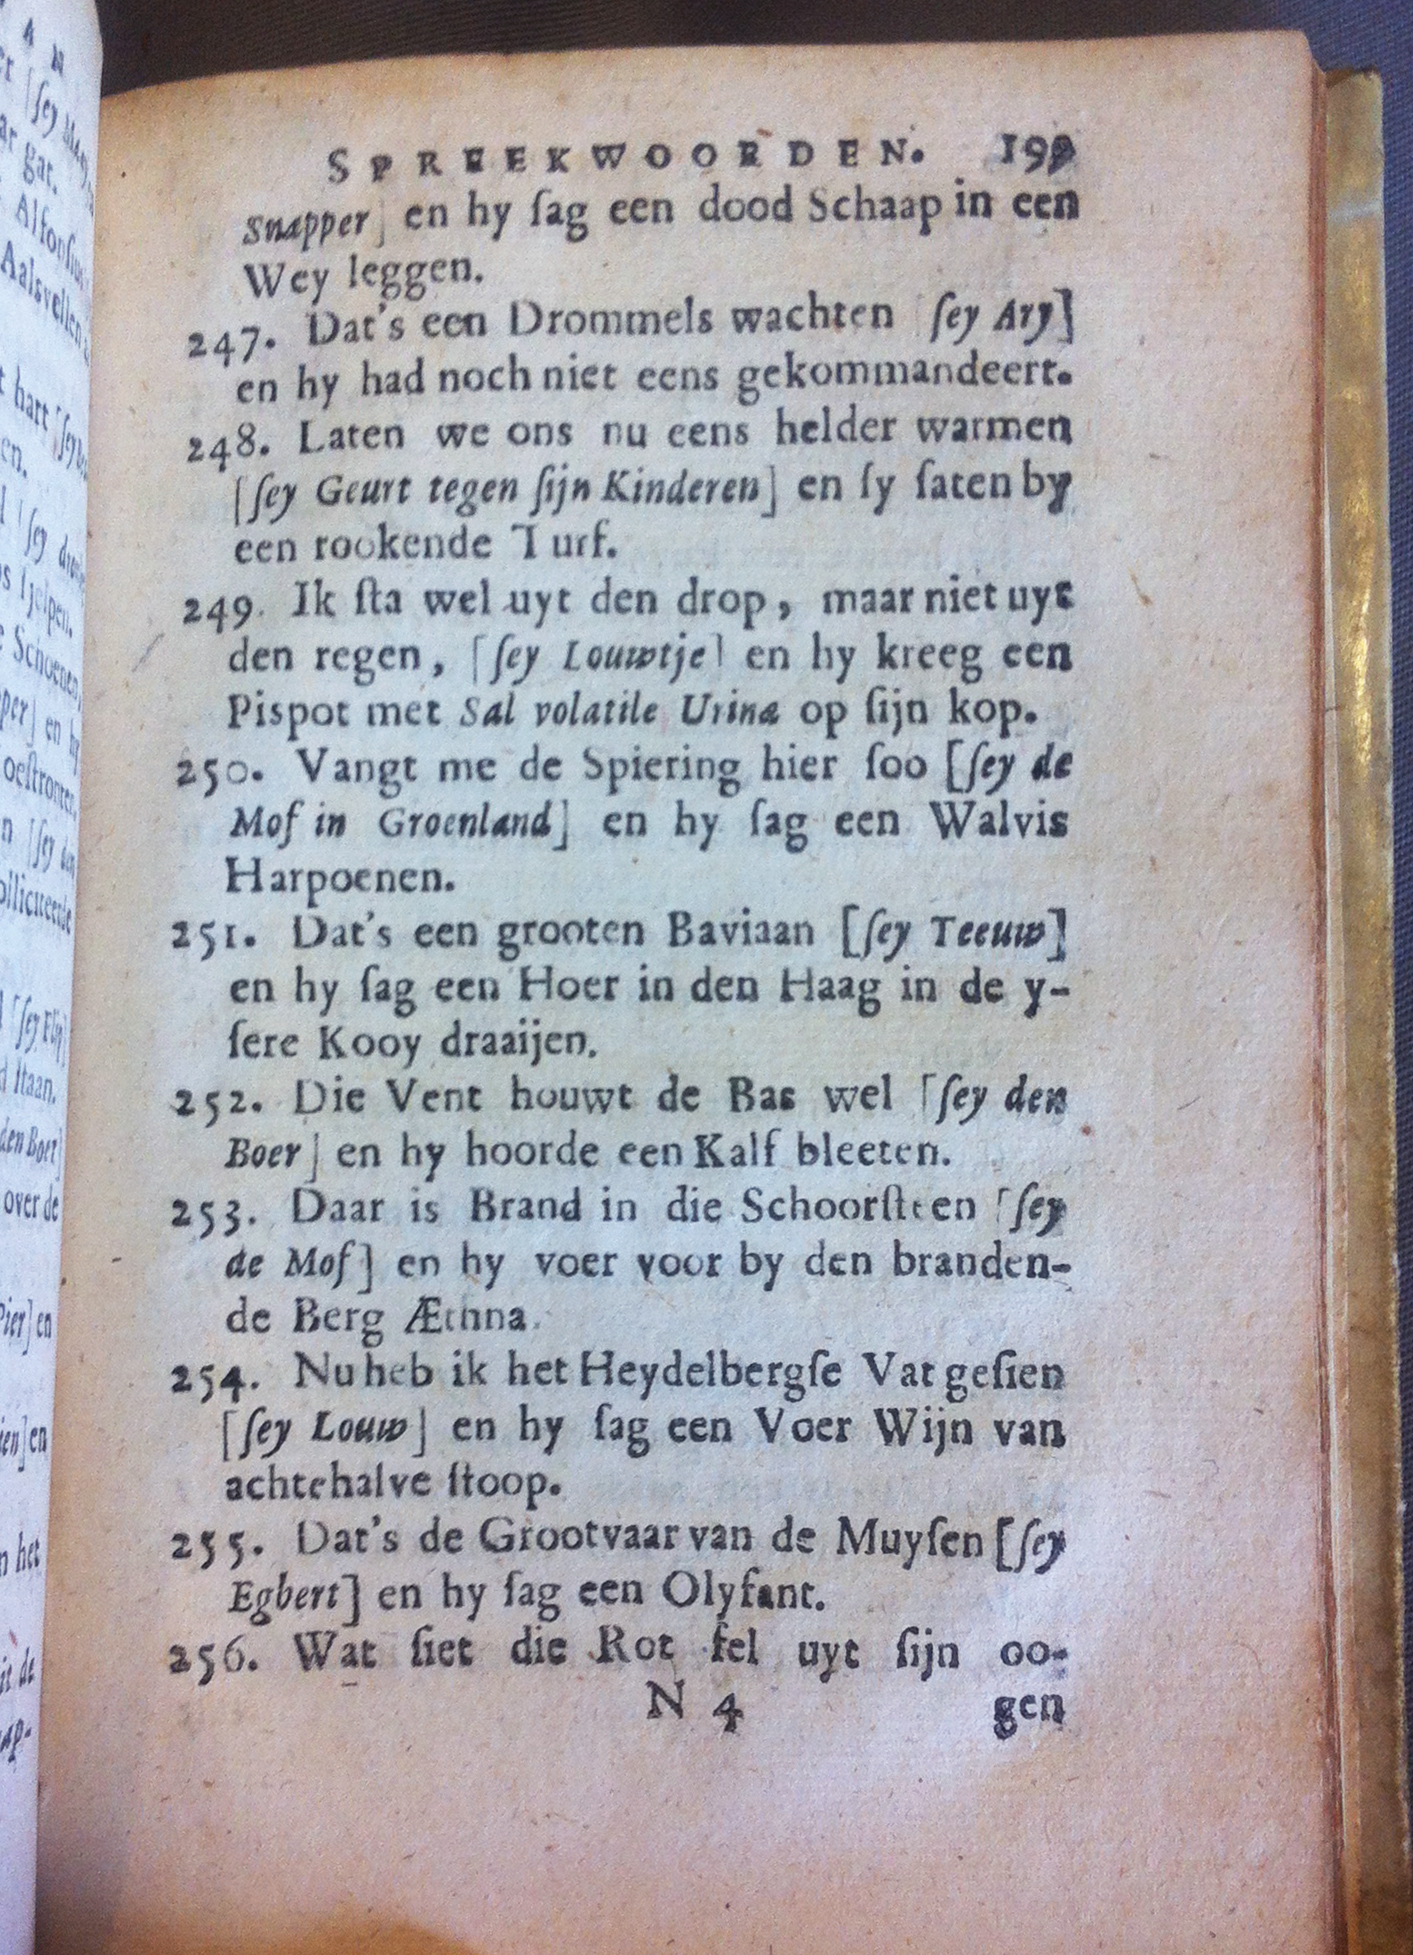 SPREEKWOORDEN. 199
Snapper] en hy ſag een dood Schaap in een
Wey leggen.
247. Dat's een Drommels wachten [ſey Ary]
en hy had noch niet eens gekommandeert.
248. Laten we ons nu eens helder warmen
[ſey Geurt tegen ſijn Kinderen] en ſy ſaten by
een rookende Turf.
249. Ik ſta wel uyt den drop, maar niet uyt
den regen, [ſey Louwtje] en hy kreeg een
Pispot met Sal volatile Urinæ op ſijn kop.
250. Vangt me de Spiering hier ſoo [ſey de
Mof in Groenland] en hy ſag een Walvis
Harpoenen.
251. Dat's een grooten Baviaan [ſey Teeuw]
en hy ſag een Hoer in den Haag in de y-
ſere Kooy draaijen.
252. Die Vent houwt de Bas wel [ſey den
Boer] en hy hoorde een Kalf bleeten.
253. Daar is Brand in die Schoorſteen [ſey
de Mof] en hy voer voor by den branden-
de Berg Æthna.
254. Nu heb ik het Heydelbergſe Vat geſien
[ſey Louw] en hy ſag een Voer Wijn van
achtehalve ſtoop.
255. Dat's de Grootvaar van de Muyſen [ſey
Egbert] en hy ſag een Olyfant.
256. Wat ſiet die Rot fel uyt ſijn oo-
N 4 gen